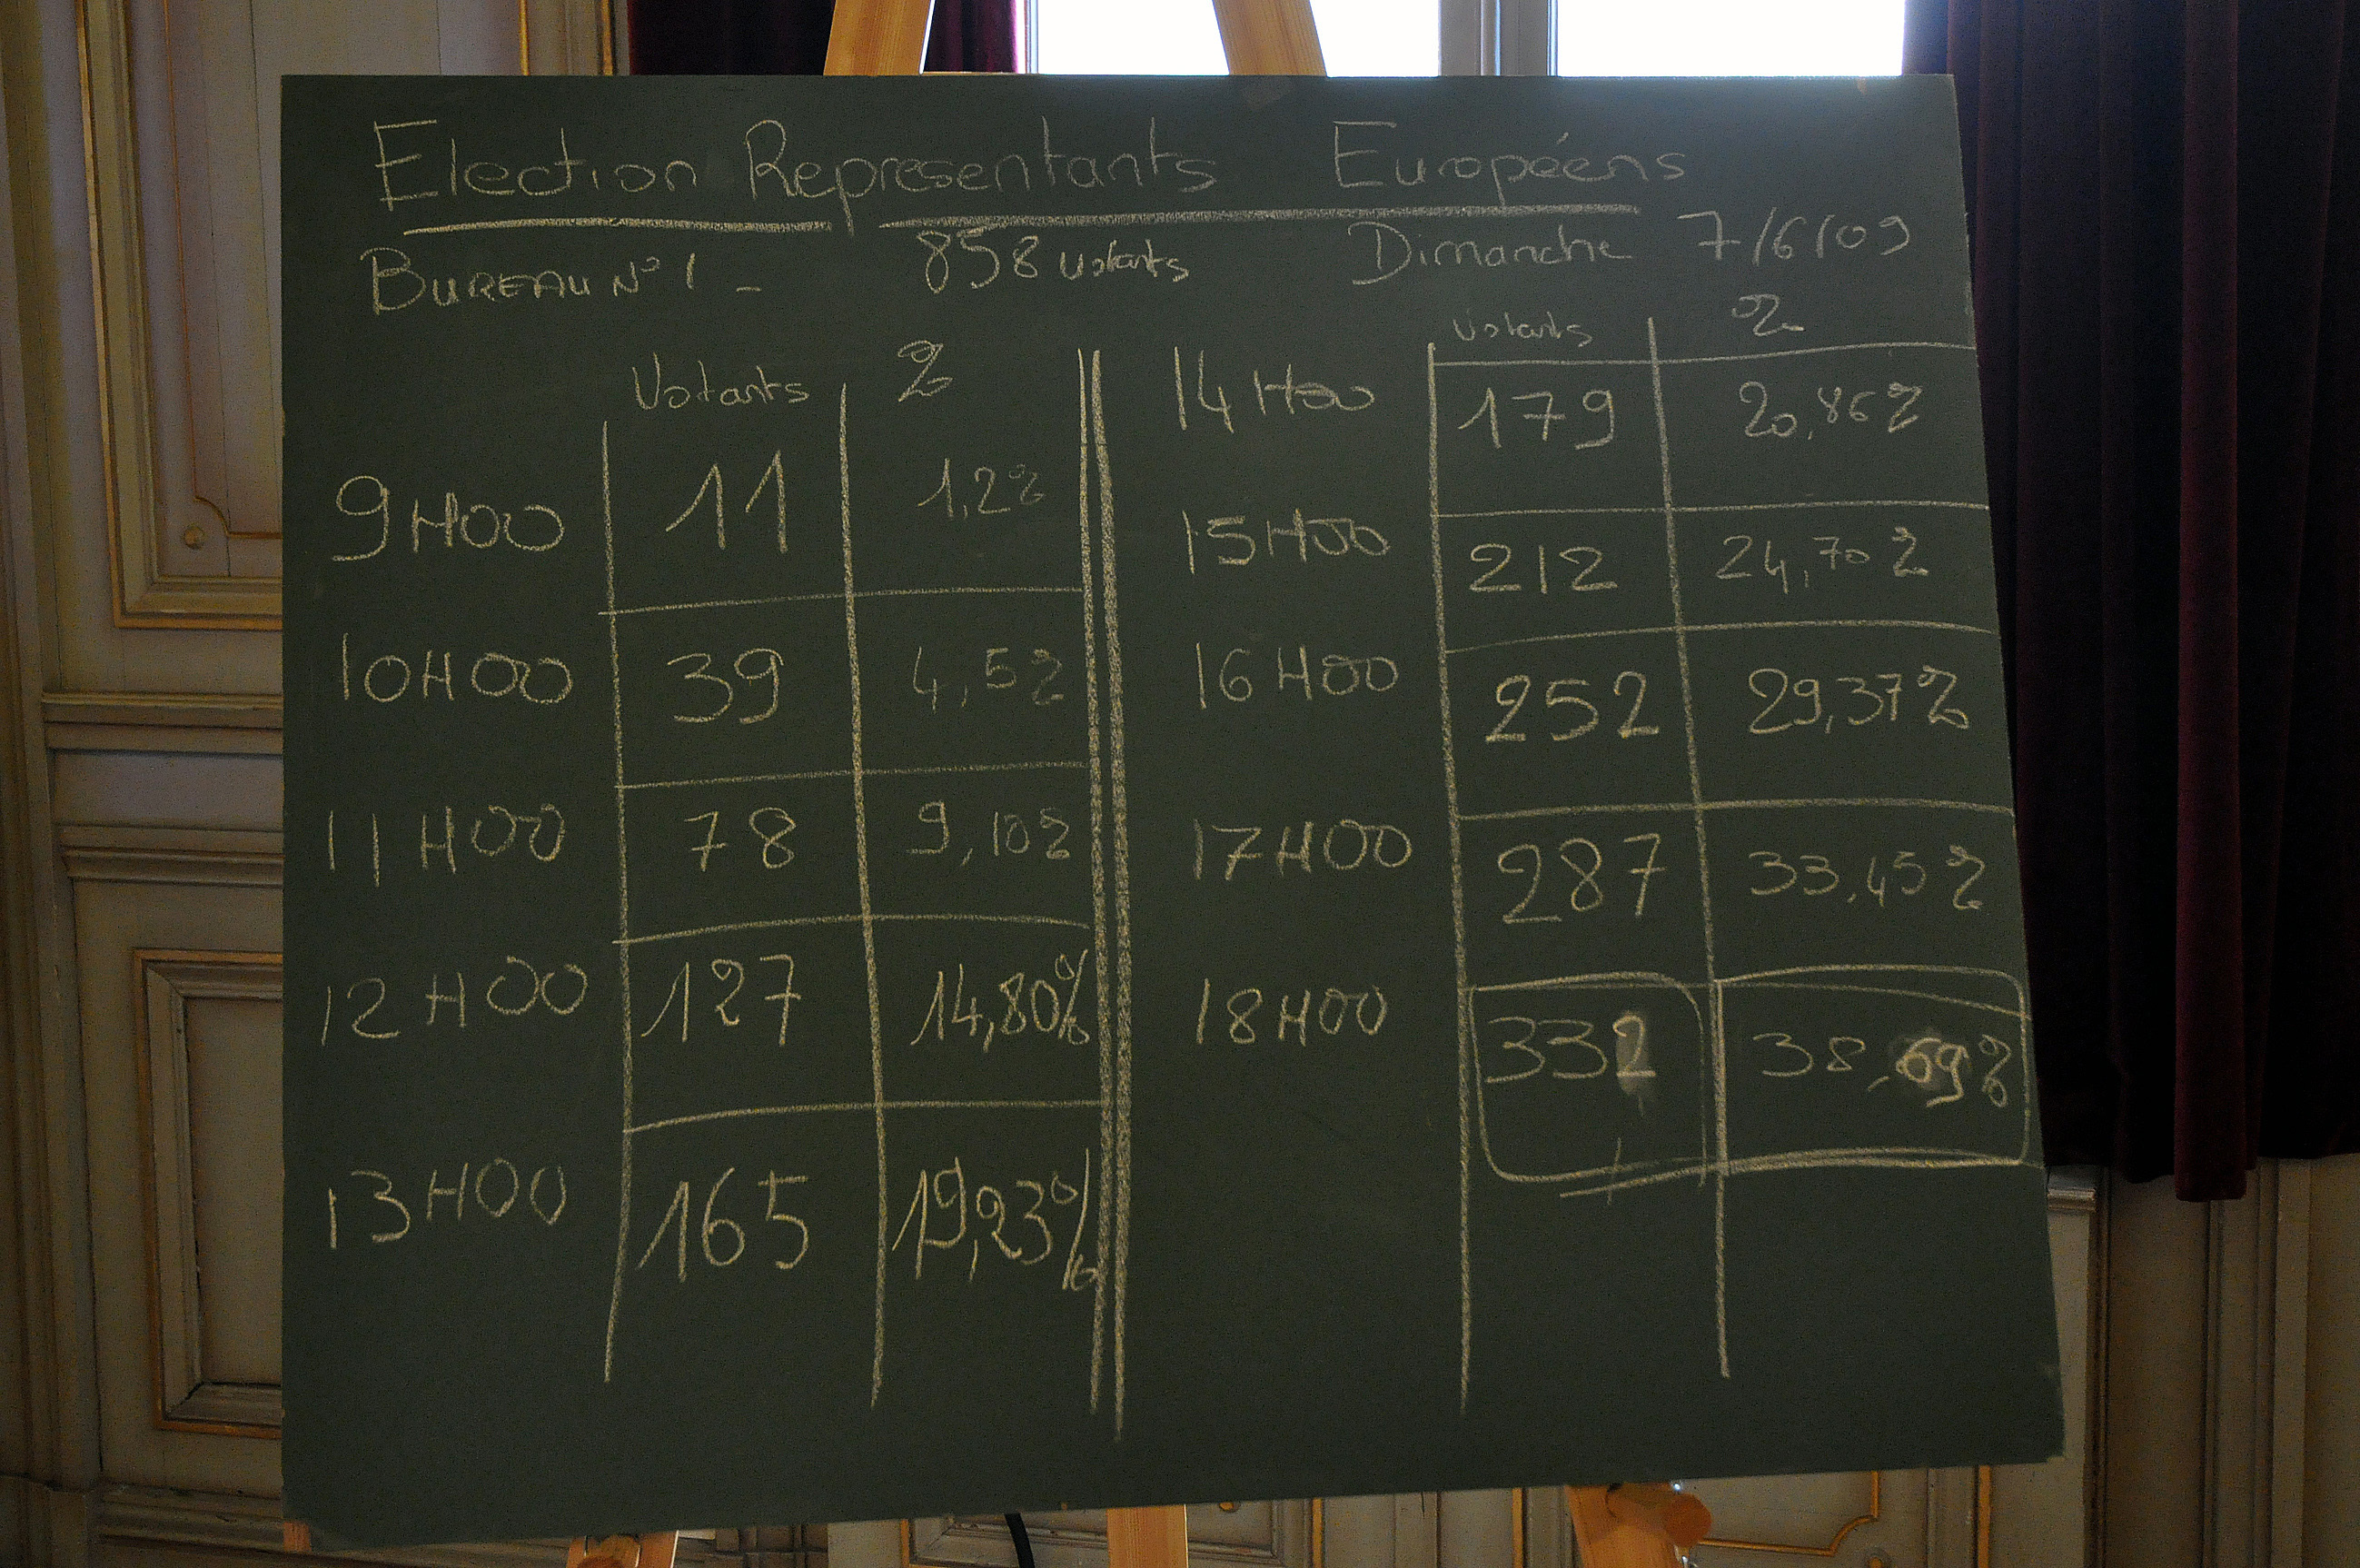 Election Representants Européens
BUREAU N° 1 - 858 votants Dimanche 7/6/09
Votants %
9H00 11 1,2%
10H00 39 4,5%
11H00 78 9,10%
12H00 127 14,80%
13H00 165 19,23%
votants %
14H00 179 20,86%
15H00 212 24,70%
16H00 252 29,37%
17H00 287 33,45%
18H00 332 38,69%